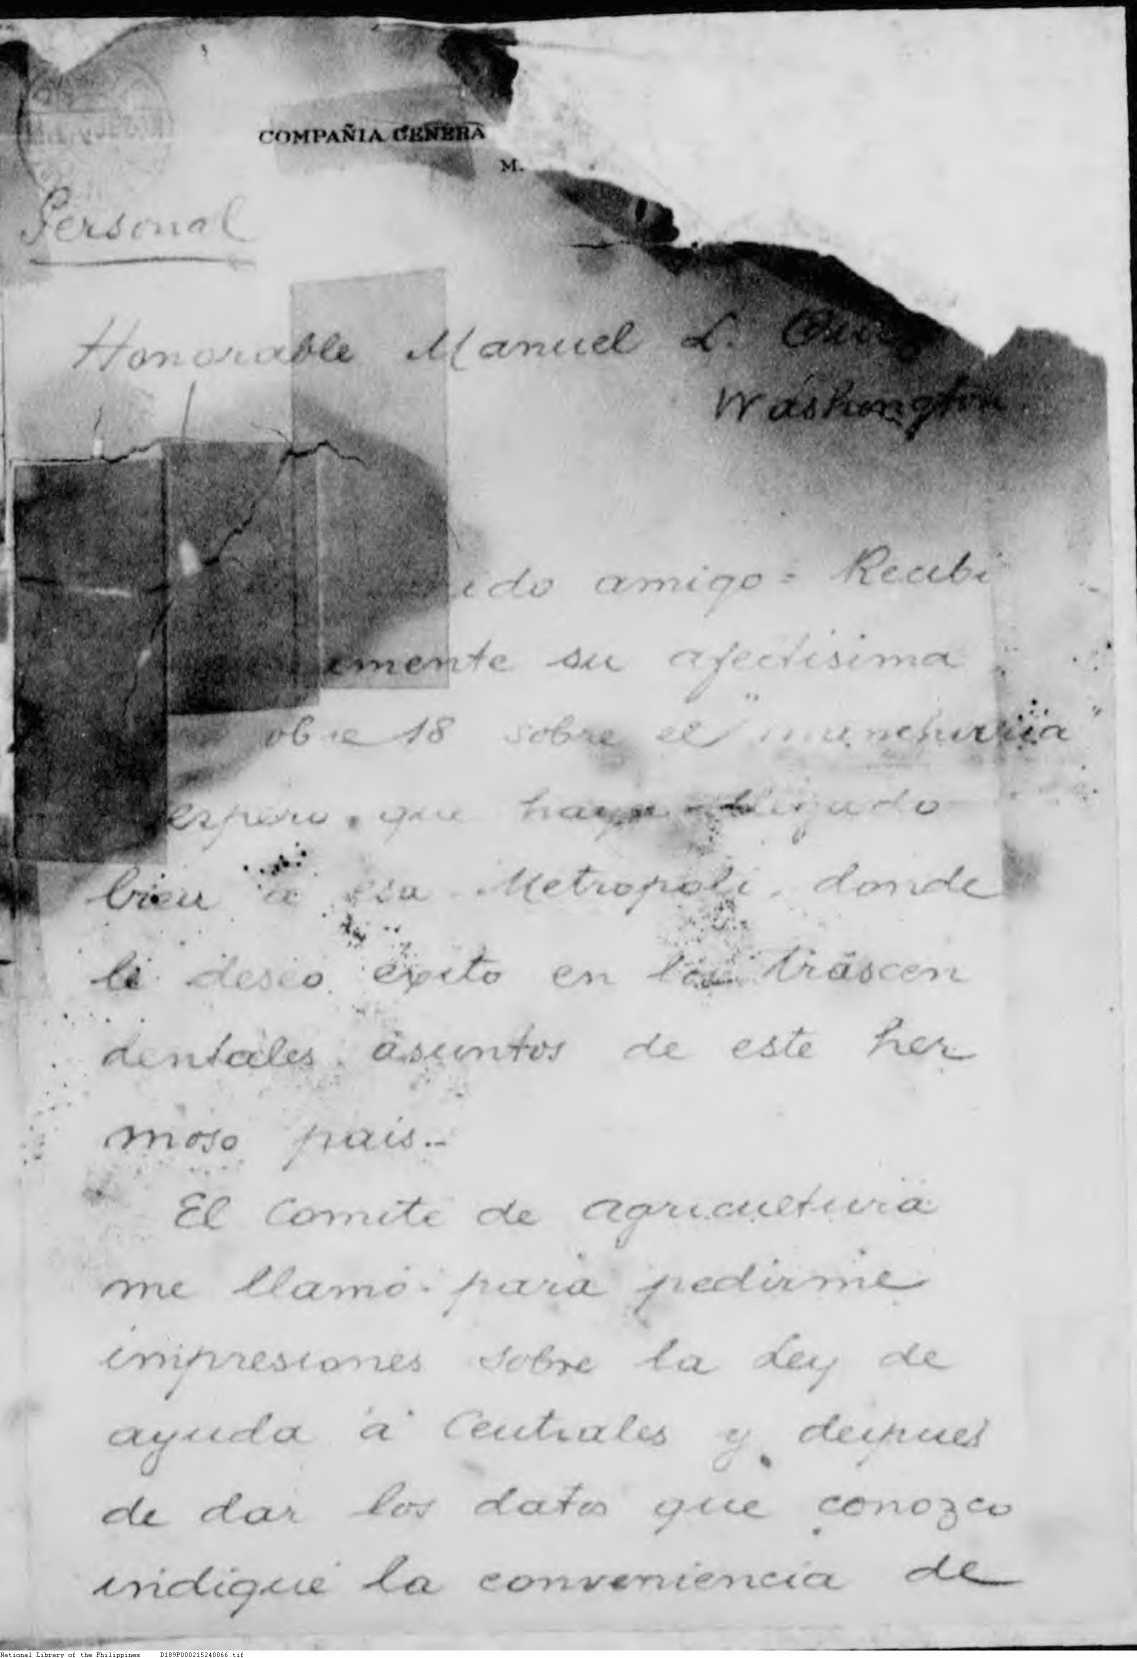 COMPAÑIA GENERA
M.
Personal
Honorable Manuel L.
Washington
ido amigo = Recibi
mente su afectisima
obre 18 sobre el "
espero que haya llegado
bien a esa Metropoli, donde
le deseo exito en los trascen
dentales asuntos de este her
moso pais.-
El Comite de agricultura
me llamó para pedirme
impresiones sobre la Ley de
ayuda á Centrales y despues
de dar los datos que conozco
indiqué la conveniencia de
National Library of the Philippines D189P000215240066.tif